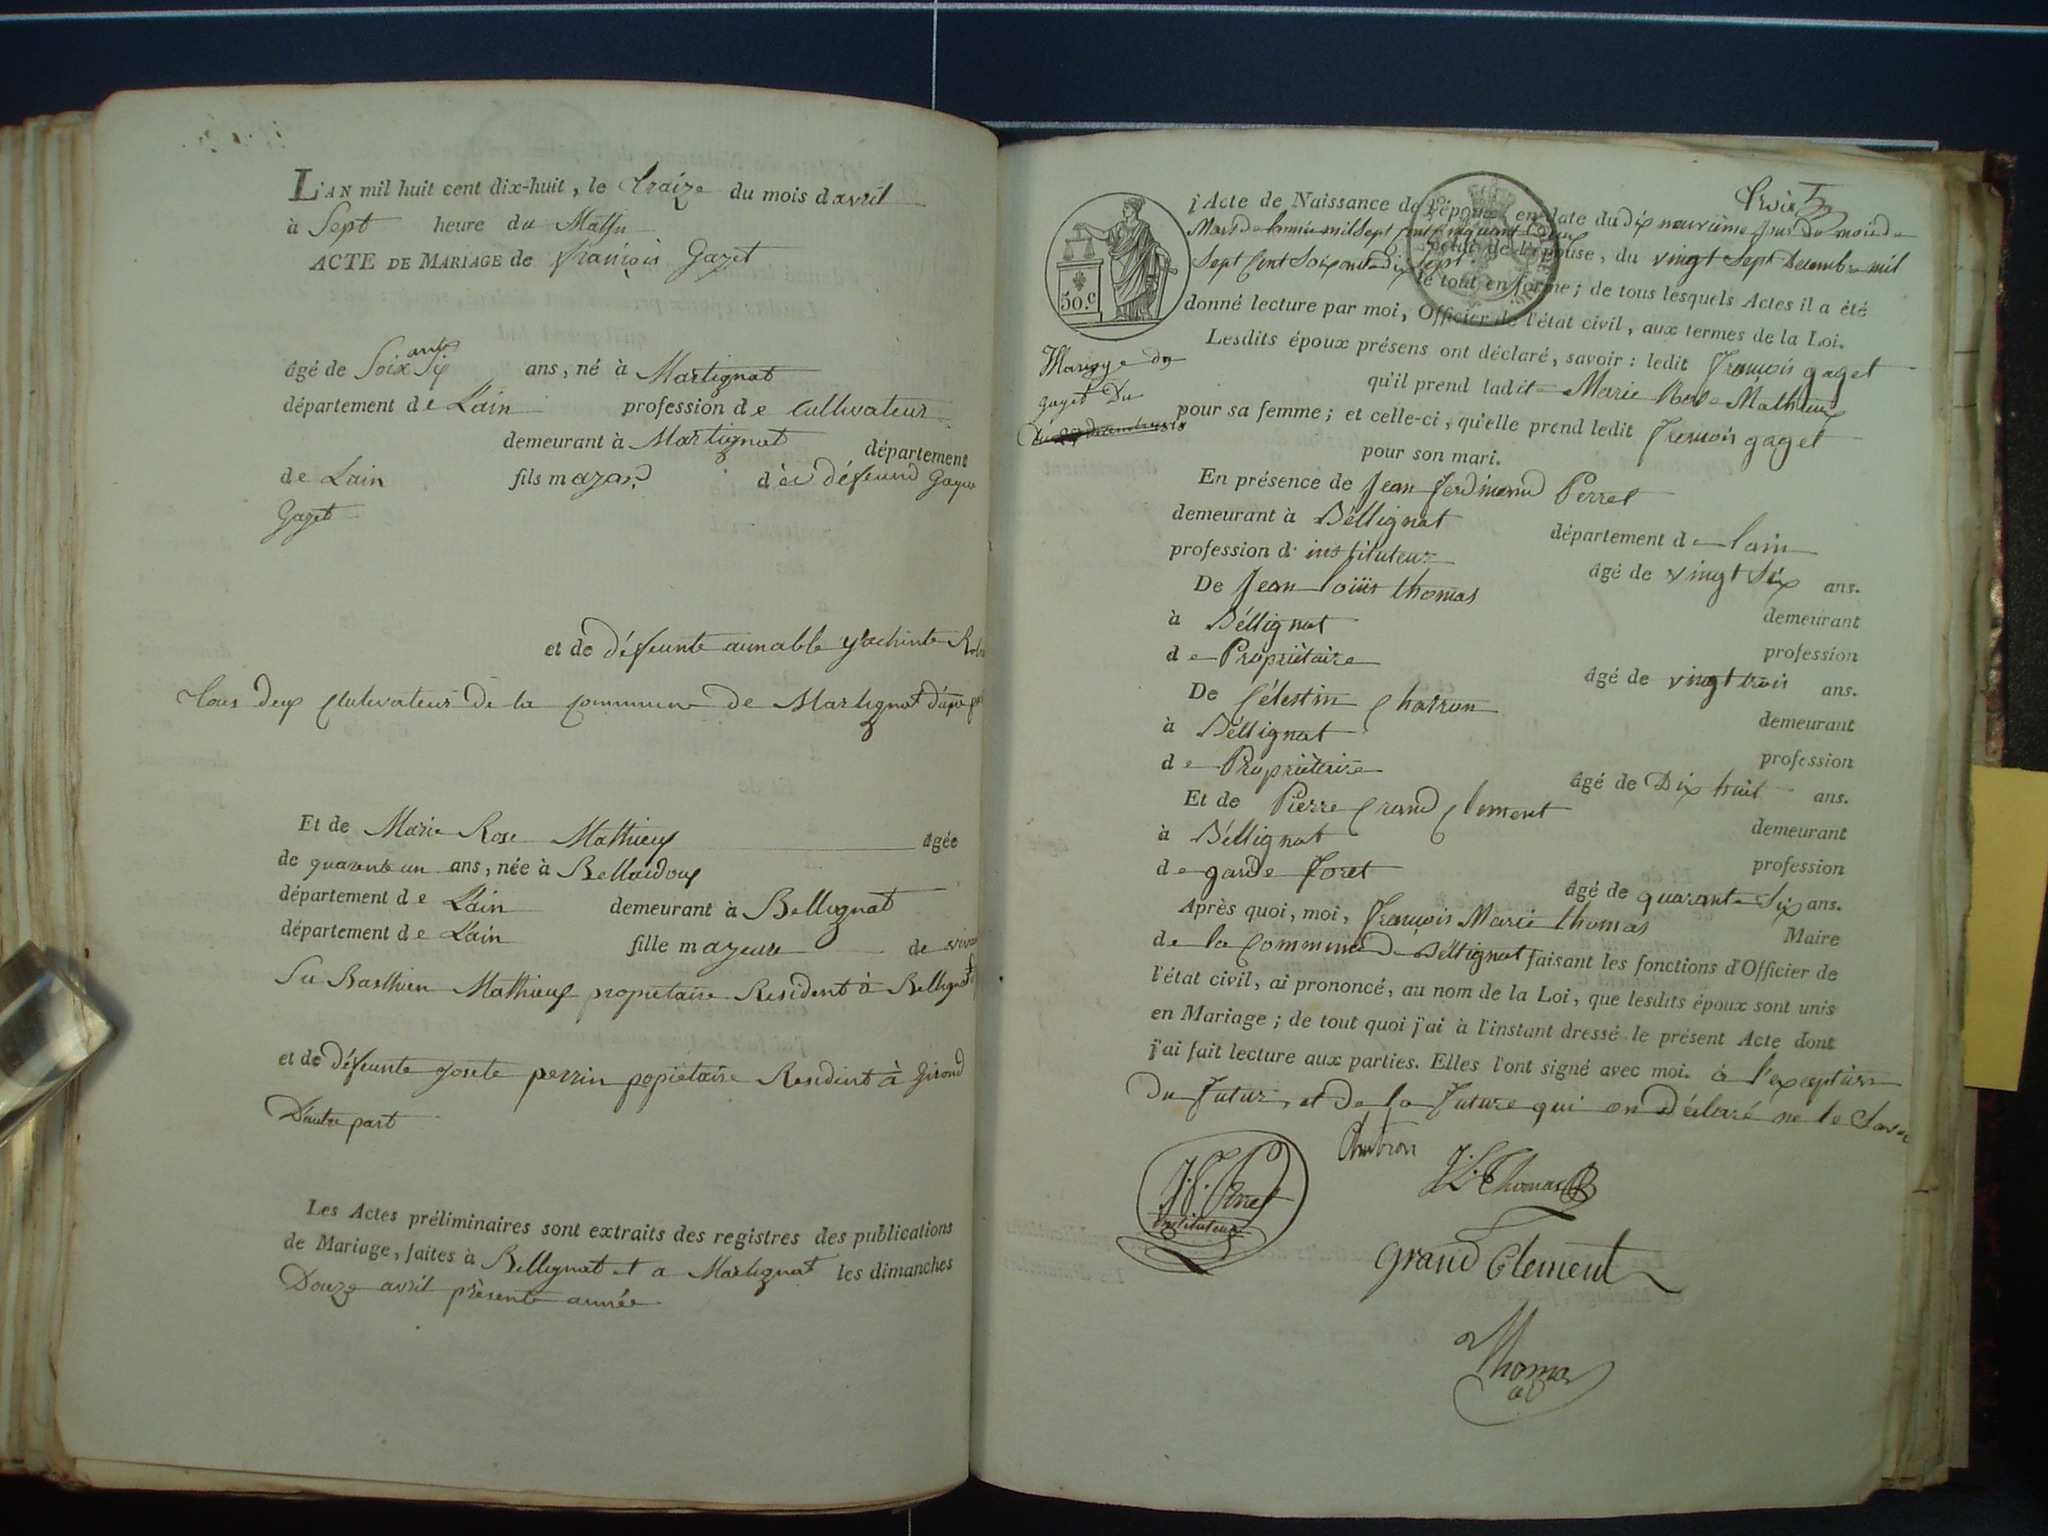 L'AN mil huit cent dix-huit, le traize du mois d avril
à Sept heure du Matin
ACTE DE MARIAGE de François Gaget
âgé de Soixante Six ans, né à Martignat
département de Lain profession de Cultivateur
demeurant à Martignat département
de Lain fils mazor d' défeund
Gaget
et de défeunte aimable
tous deux Cultivateur de la Commune de Martignat
Et de Marie Rose Mathieux âgée
de quarente un ans, née à Belleidoux
département de Lain demeurant à Bellignat
département de Lain fille mazeure de
Su Barthien Mathieux propietaire Resident à Bellignat
et de défeunte Josete perrin popietaire Resident à Girond
D'autre part
Les Actes préliminaires sont extraits des registres des publications
de Mariage, faites à Bellignat et a Martignat les dimanches
Douze avril présente année
trois
50.c
l'Acte de Naissance de l'époux en date du dix neuvième jour du mois de
Mars de lannée mil Sept Cent Cinquant
celui de l'épouse, du vingt Sept Decembre mil
Sept Cent Soixante dix Sept.
le tout en forme; de tous lesquels Actes il a été
donné lecture par moi, Officier de l'état civil, aux termes de la Loi.
Mariage de
gaget Du
Lesdits époux présens ont déclaré, savoir: ledit François gaget
qu'il prend ladite Marie Rose Mathieux
pour sa femme; et celle-ci, qu'elle prend ledit François gaget
pour son mari.
En présence de Jean ferdinand Perret
demeurant à Béllignat département de lain
profession d' instituteur âgé de vingt Six ans.
De Jean loüis thomas demeurant
à Béllignat profession
de Propriétaire âgé de vingt trois ans.
De Célestin Charron demeurant
à Béllignat profession
de Propriétaire âgé de Dix huit ans.
Et de Pierre Grand Clement demeurant
à Béllignat profession
de garde foret âgé de quarante Six ans.
Après quoi, moi, François Marie thomas Maire
de la Commune de Béllignat faisant les fonctions d'Officier de
l'état civil, ai prononcé, au nom de la Loi, que lesdits époux sont unis
en Mariage; de tout quoi j'ai à l'instant dressé le présent Acte dont
j'ai fait lecture aux parties. Elles l'ont signé avec moi. à l'exception
du futur, et de la future qui on déclaré ne le Savoir
J. f. Perret
instituteur
J. L. Thomas
Grand Clement
Thomas